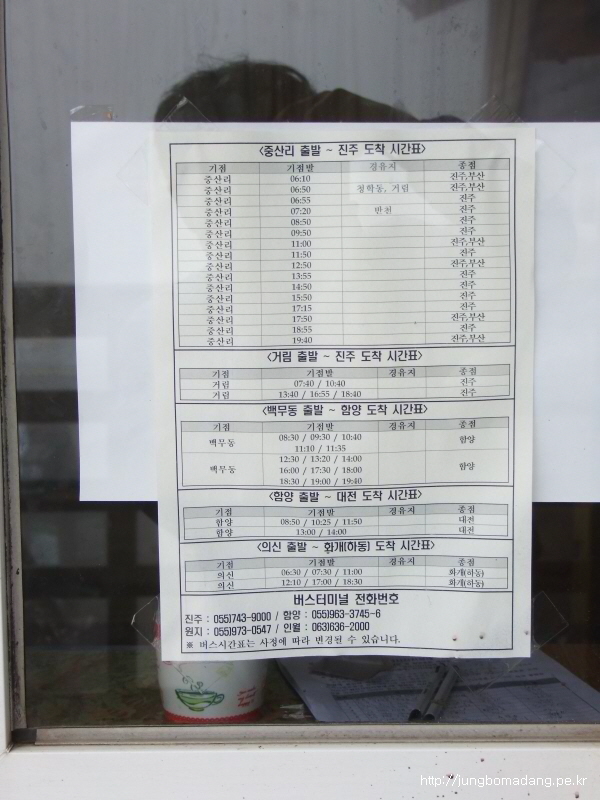 <중산리 출발 ~ 진주 도착 시간표>
기점 기점발 경유지 종점
중산리 06:10 진주,부산
중산리 06:50 청학동, 거림 진주,부산
중산리 06:55 진주
중산리 07:20 반천 진주
중산리 08:50 진주
중산리 09:50 진주
중산리 11:00 진주,부산
중산리 11:50 진주
중산리 12:50 진주,부산
중산리 13:55 진주
중산리 14:50 진주
중산리 15:50 진주
중산리 17:15 진주
중산리 17:50 진주,부산
중산리 18:55 진주
중산리 19:40 진주,부산
<거림 출발 ~ 진주 도착 시간표>
기점 기점발 경유지 종점
거림 07:40 / 10:40 진주
거림 13:40 / 16:55 / 18:40 진주
<백무동 출발 ~ 함양 도착 시간표>
기점 기점발 경유지 종점
백무동 08:30 / 09:30 / 10:40 함양
11:10 / 11:35
12:30 / 13:20 / 14:00
백무동 16:00 / 17:30 / 18:00 함양
18:30 / 19:00 / 19:40
<함양 출발 ~ 대전 도착 시간표>
기점 기점발 경유지 종점
함양 08:50 / 10:25 / 11:50 대전
함양 13:00 / 14:00 대전
<의신 출발 ~ 화개(하동) 도착 시간표>
기점 기점발 경유지 종점
의신 06:30 / 07:30 / 11:00 화개(하동)
의신 12:10 / 17:00 / 18:30 화개(하동)
버스터미널 전화번호
진주 : 055)743-9000 / 함양 : 055)963-3745-6
원지 : 055)973-0547 / 인월 : 063)636-2000
※ 버스시간표는 사정에 따라 변경될 수 있습니다.
http://jungbomadang.pe.kr